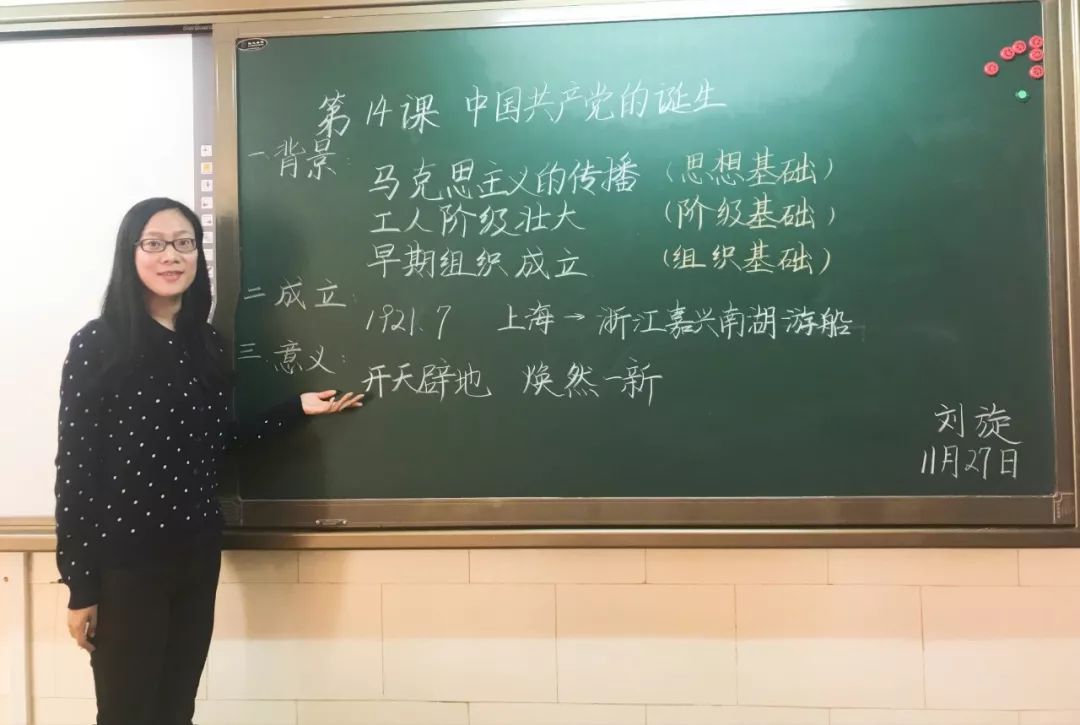 第14课 中国共产党的诞生
一背景:
马克思主义的传播 (思想基础)
工人阶级壮大 (阶级基础)
早期组织成立 (组织基础)
二成立:
1921.7 上海→浙江嘉兴南湖游船
三意义:
开天辟地 焕然一新
刘旋
11月27日